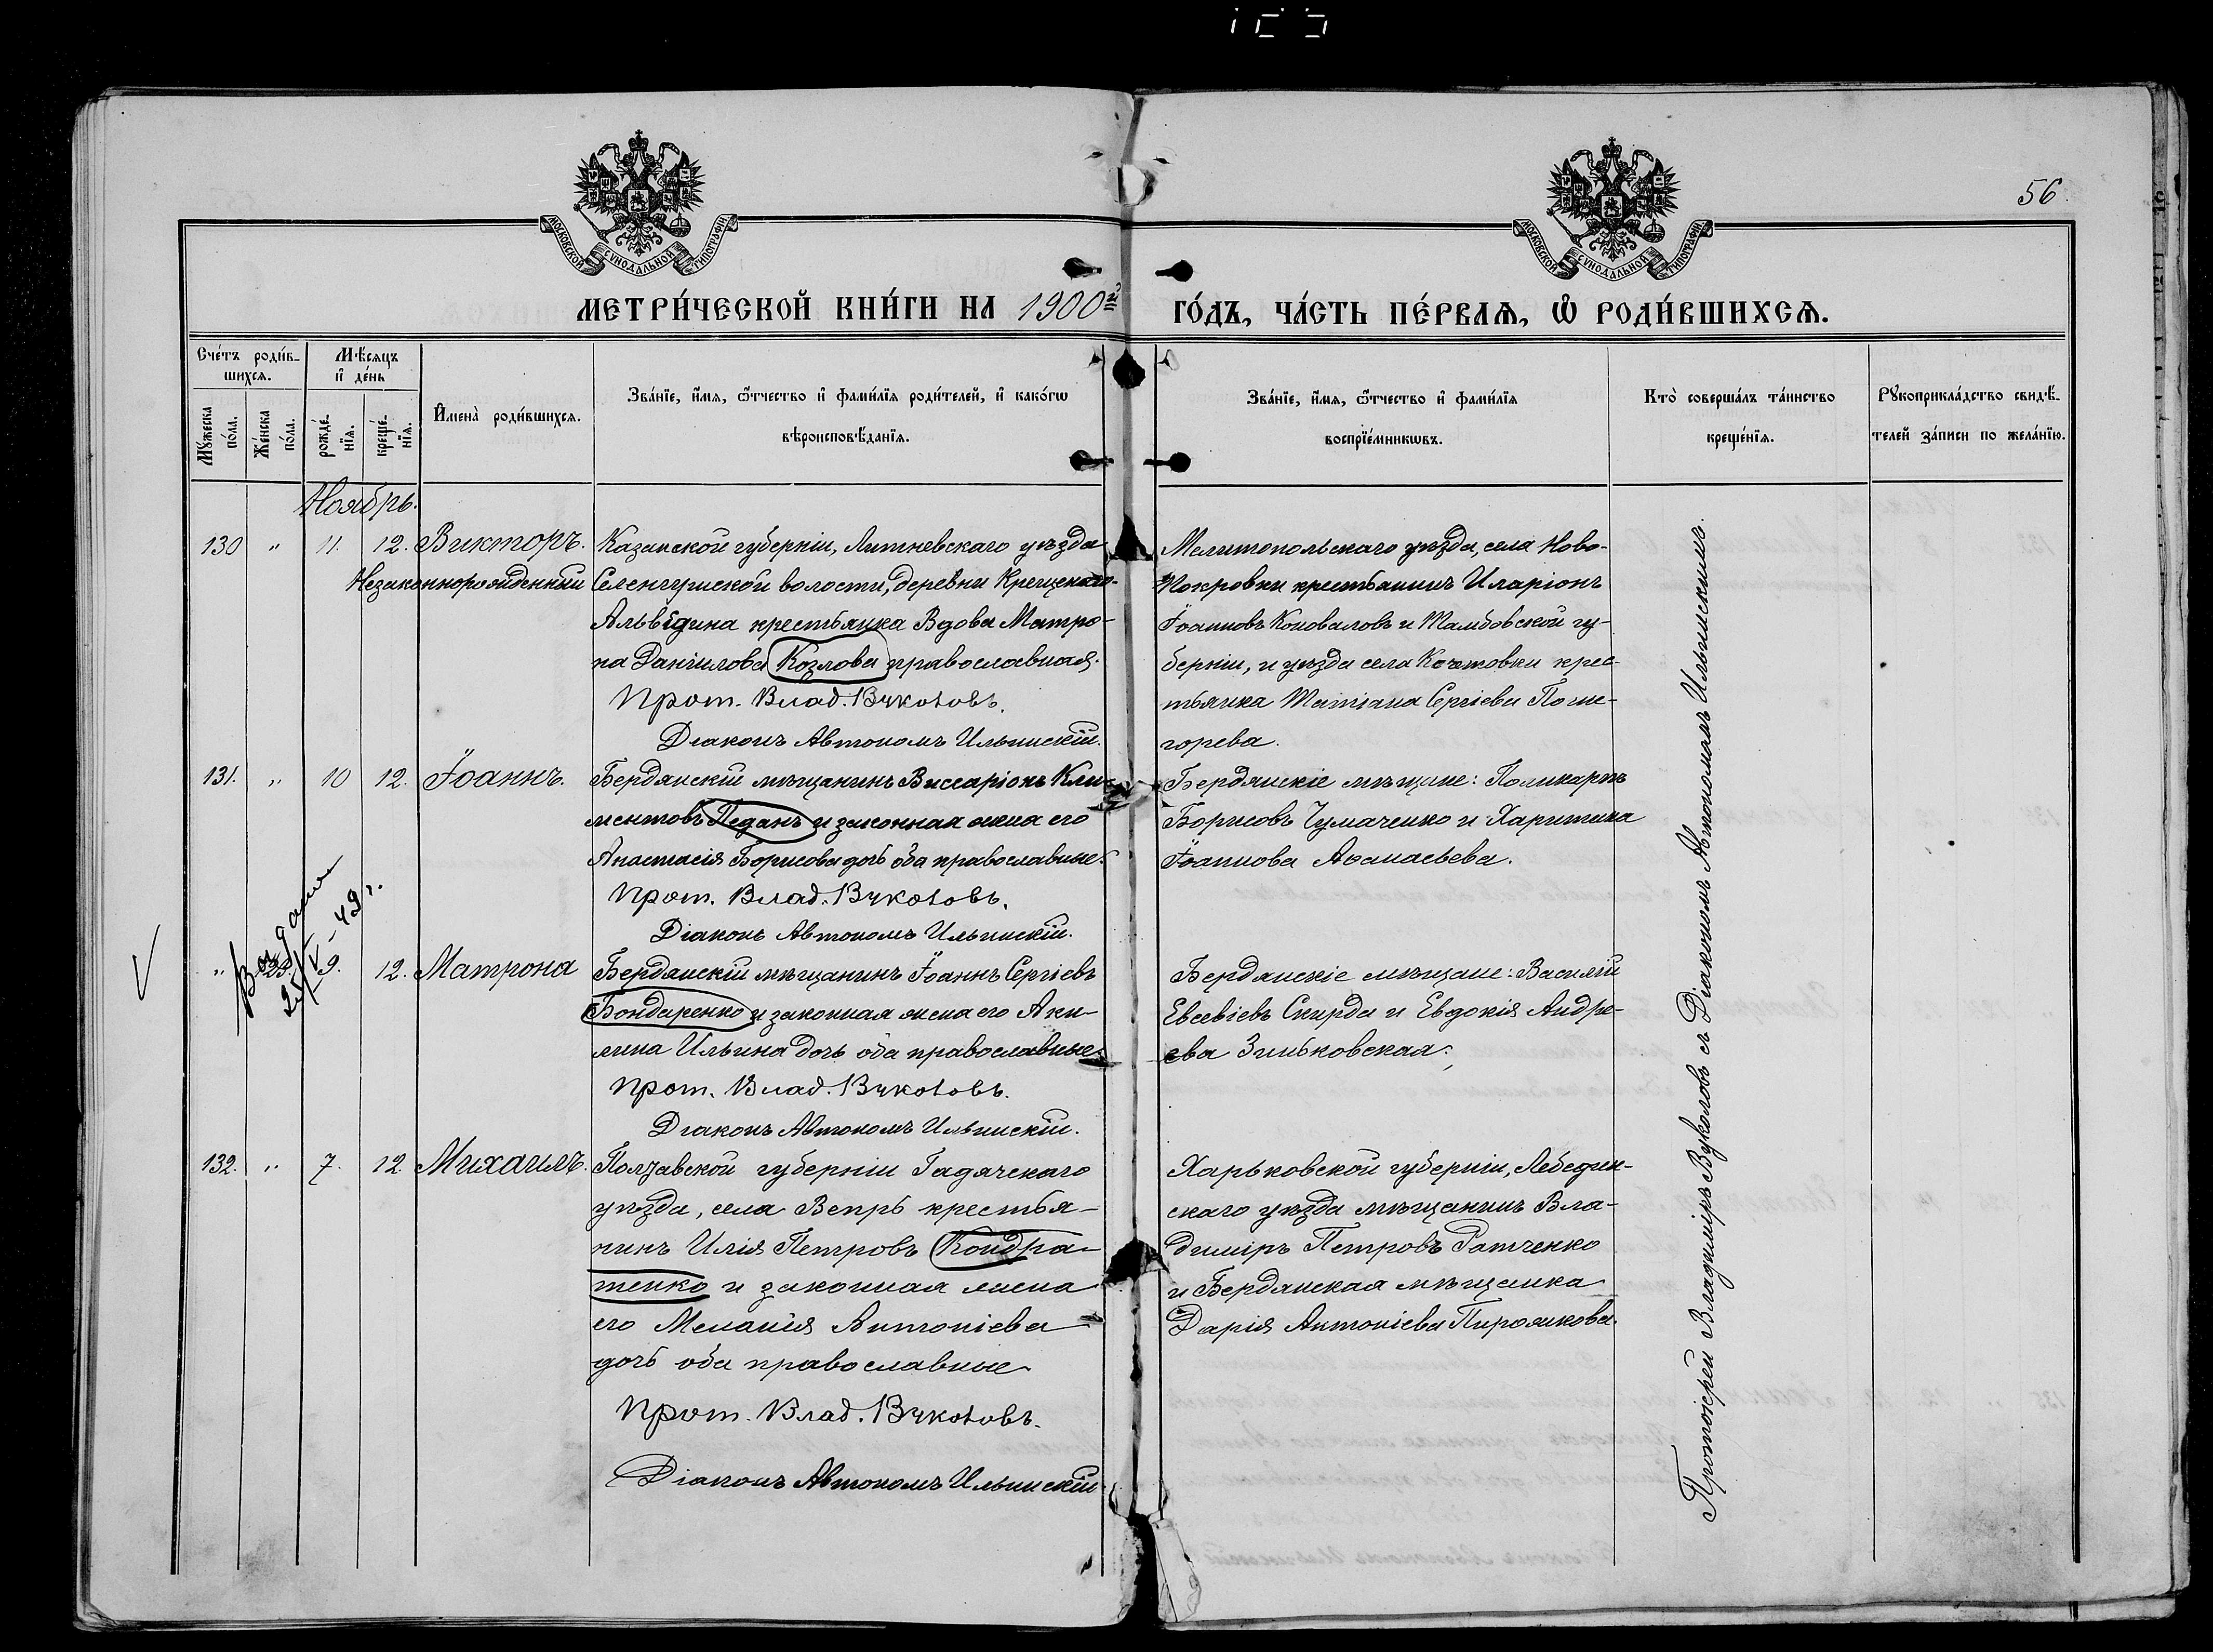 56.
МОСКОВСКОЙ СѴНОДАЛЬНОЙ ТИПОГРАФІИ
МОСКОВСКОЙ СѴНОДАЛЬНОЙ ТИПОГРАФІИ
МЕТРИ́ЧЕСКОЙ КНИ́ГИ НА 1900й ГО́ДЪ, ЧА́СТЬ ПЕ́РВАѦ, Ѡ҆ РОДИ́ВШИХСѦ.
Сче́тъ роди́в-
шихсѧ.
Мꙋ́жеска по́ла.
Же́нска по́ла.
Мѣ́сѧцъ
и҆ де́нь
рожде́-
нїѧ.
креще́-
нїѧ.
И҆мена̀ роди́вшихсѧ.
Зва́нїе, и҆́мѧ, ѻ҆́тчество и҆ фами́лїѧ роди́телей, и҆ како́гѡ
вѣроисповѣ́данїѧ.
Зва́нїе, и҆́мѧ, ѻ҆́тчество и҆ фами́лїѧ
воспрїе́мникѡвъ.
Кто̀ соверша́лъ та́инство
креще́нїѧ.
Рꙋкоприкла́дство свидѣ́-
телей за́писи по жела́нїю.
Ноябрь.
130 " 11. 12. Викторъ.
Незаконнорожденный
Казанской губерніи, уѣзда
волости, деревни Крещенаго-
крестьянка Вдова Матро-
на Данилова Козлова православная.
Прот. Влад. Вуколовъ.
Діаконъ Автономъ Ильинскій.
Мелитопольскаго уѣзда, села Ново-
Покровки крестьянинъ Иларіонъ
Іоанновъ Коноваловъ и Тамбовской гу-
берніи, и уѣзда села крес-
тьянка Татіана Сергіева
горева.
131. " 10 12. Іоаннъ.
Бердянскій мѣщанинъ Виссаріонъ Кли-
ментовъ Педанъ и законная жена его
Анастасія Борисова дочь оба православные.
Прот. Влад. Вуколовъ.
Діаконъ Автономъ Ильинскій.
Бердянскіе мѣщане: Поликарпъ
Борисовъ Чумаченко и Харитина
Іоаннова Аѳанасьева.
" 9. 12. Матрона
49 г.
Бердянскій мѣщанинъ Іоаннъ Сергіевъ
Бондаренко и законная жена его Аки-
лина Ильина дочь оба православные.
Прот. Влад. Вуколовъ.
Діаконъ Автономъ Ильинскій.
Бердянскіе мѣщане: Василій
Евсевіевъ Скирда и Евдокія Андре-
ева Зиньковская.
132. " 7. 12. Михаилъ.
Полтавской губерніи Гадячскаго
уѣзда, села Вепрь крестья-
нинъ Илія Петровъ Кондра-
тенко и законная жена
его Меланія Антоніева
дочь оба православные
Прот. Влад. Вуколовъ.
Діаконъ Автономъ Ильинскій
Харьковской губерніи, Лебедин-
скаго уѣзда мѣщанинъ Вла-
димiръ Петровъ Ратченко
и Бердянская мѣщанка
Дарія Антоніева Пирожкова.
Протоіерей Владиміръ Вуколовъ съ Діакономъ Автономомъ Ильинскимъ.